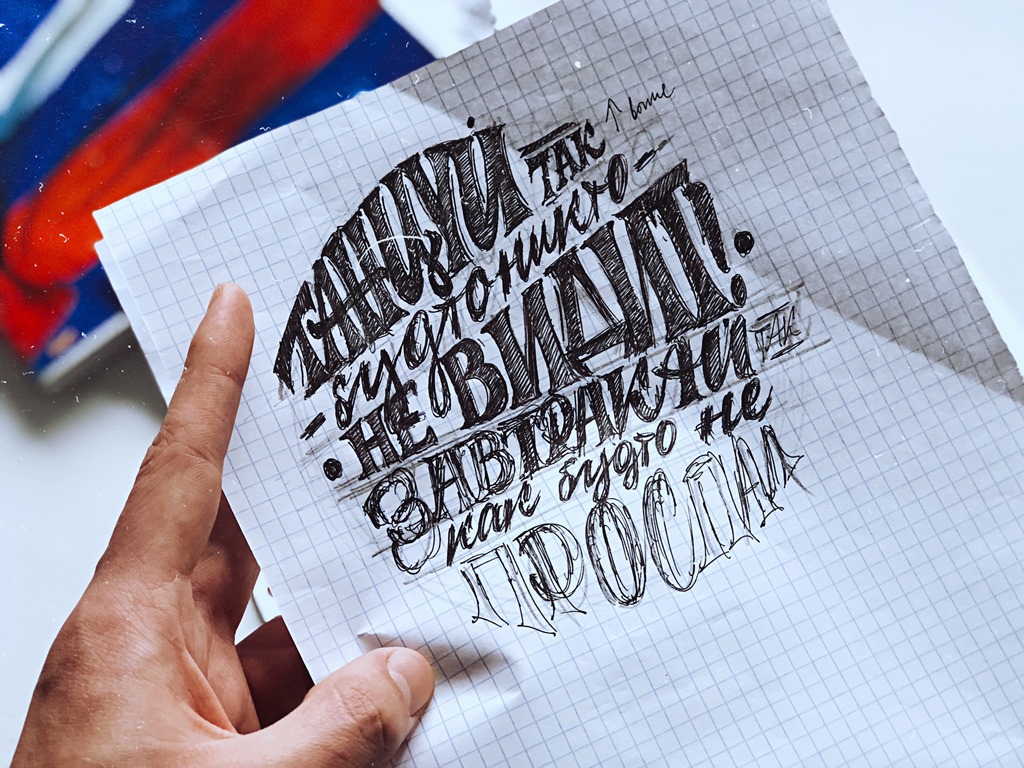 ТАНЦУЙ ТАК
будто никто
НЕ ВИДИТ!
ЗАВТРАКАЙ ТАК
как будто не
ПРОСПАЛ